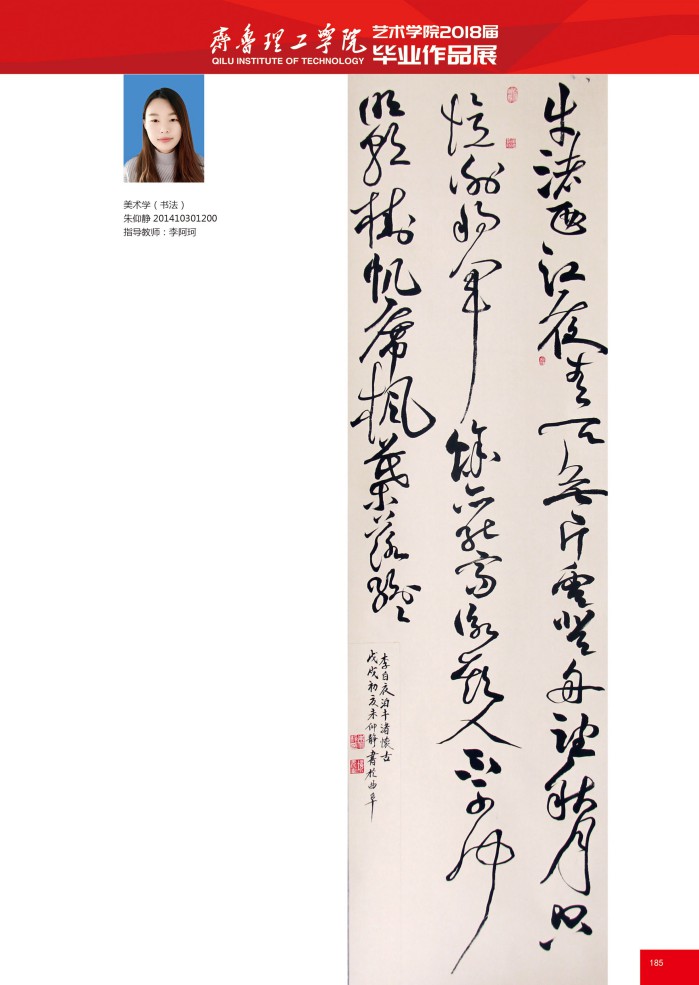 齊魯理工學院
QILU INSTITUTE OF TECHNOLOGY
艺术学院2018届
毕业作品展
美术学(书法)
朱仰静 201410301200
指导教师:李阿珂
牛渚西江夜青天無片雲登舟望秋月空
憶謝將軍餘亦能高詠斯人不可聞
明朝掛帆席楓葉落紛〻
李白夜泊牛渚懷古
戊戌初夏朱仰静書於曲阜
185